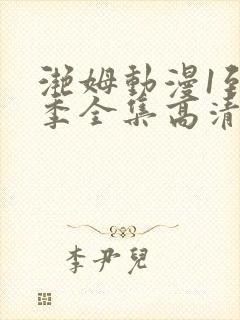 滟姆動漫1至
季全集高清
李尹兒